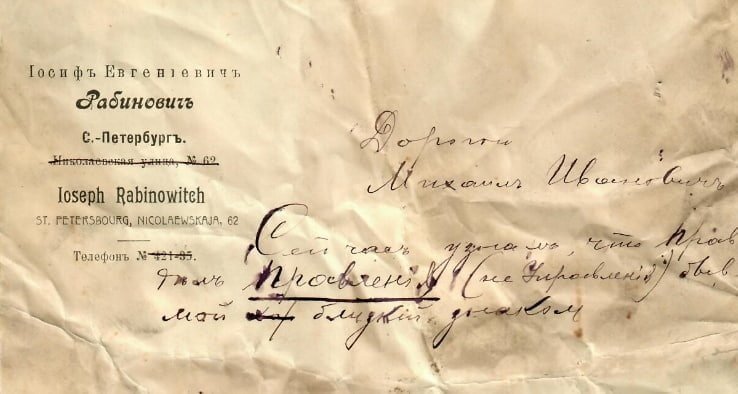 Іосифъ Евгеніевичъ
Рабиновичъ
С.-Петербургъ.
Николаевская улица, № 62.
Ioseph Rabinowitch
ST. PETERSBOURG, NICOLAEWSKAJA, 62
Телефонъ № 421-95.
Дорогой
Михаилъ Ивановичъ
Сейчасъ узналъ, что Прав
Правленія (не Управленія)
мой близкій знаком